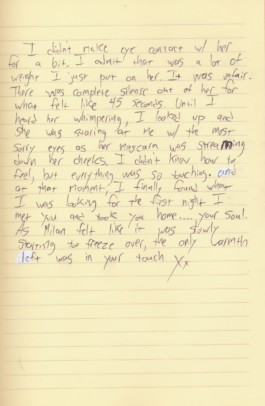 I didnt make eye contact w/ her
for a bit. I admit that was a lot of
weight I just put on her. It was unfair.
There was complete silence out of her for
what felt like 45 seconds. Until I
heard her whimpering, I looked up and
she was staring at me w/ the most
sorry eyes as her mascara was streaming
down her cheeks. I didn't know how to
feel, but everything was so touching. and
at that moment, I finally found what
I was looking for the first night I
met you and took you home.... your soul.
As Milan felt like it was slowly
starting to freeze over, the only warmth
left was in your touch Xx